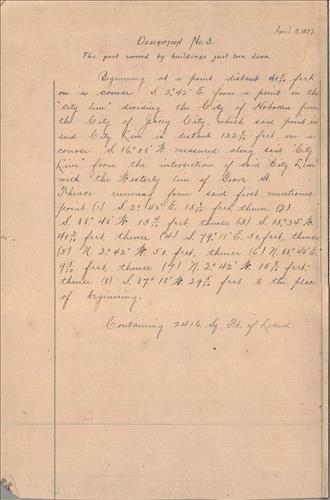 April 8, 1897
Description No. 3.
This part covered by buildings just torn down.
Beginning at a point distant feet
on a course S. 2° 42' E. from a point in the
"City line" dividing the City of Hoboken from
the City of Jersey City which said point in
said City Line is distant 132 feet on a
course S. 86° 08' W. measured along said "City
Line" from the intersection of said "City Line"
with the Westerly line of St.
Thence running from said first mentioned
point (1) S. 2° 42' E. 15 feet, thence (2)
S. 88° 46' W. 15 feet, thence (3) S. 15° 34' W.
41 feet, thence (4) S. 79° 11' E. 50 feet, thence
(5) N. 2° 42' W. 50 feet, thence (6) N. 88° 46' E.
9 feet, thence (7) N. 2° 42' W. 15 feet,
thence (8) S. 87° 18' W. 29 feet to the place
of beginning.
Containing 2416 Sq. Ft. of Land